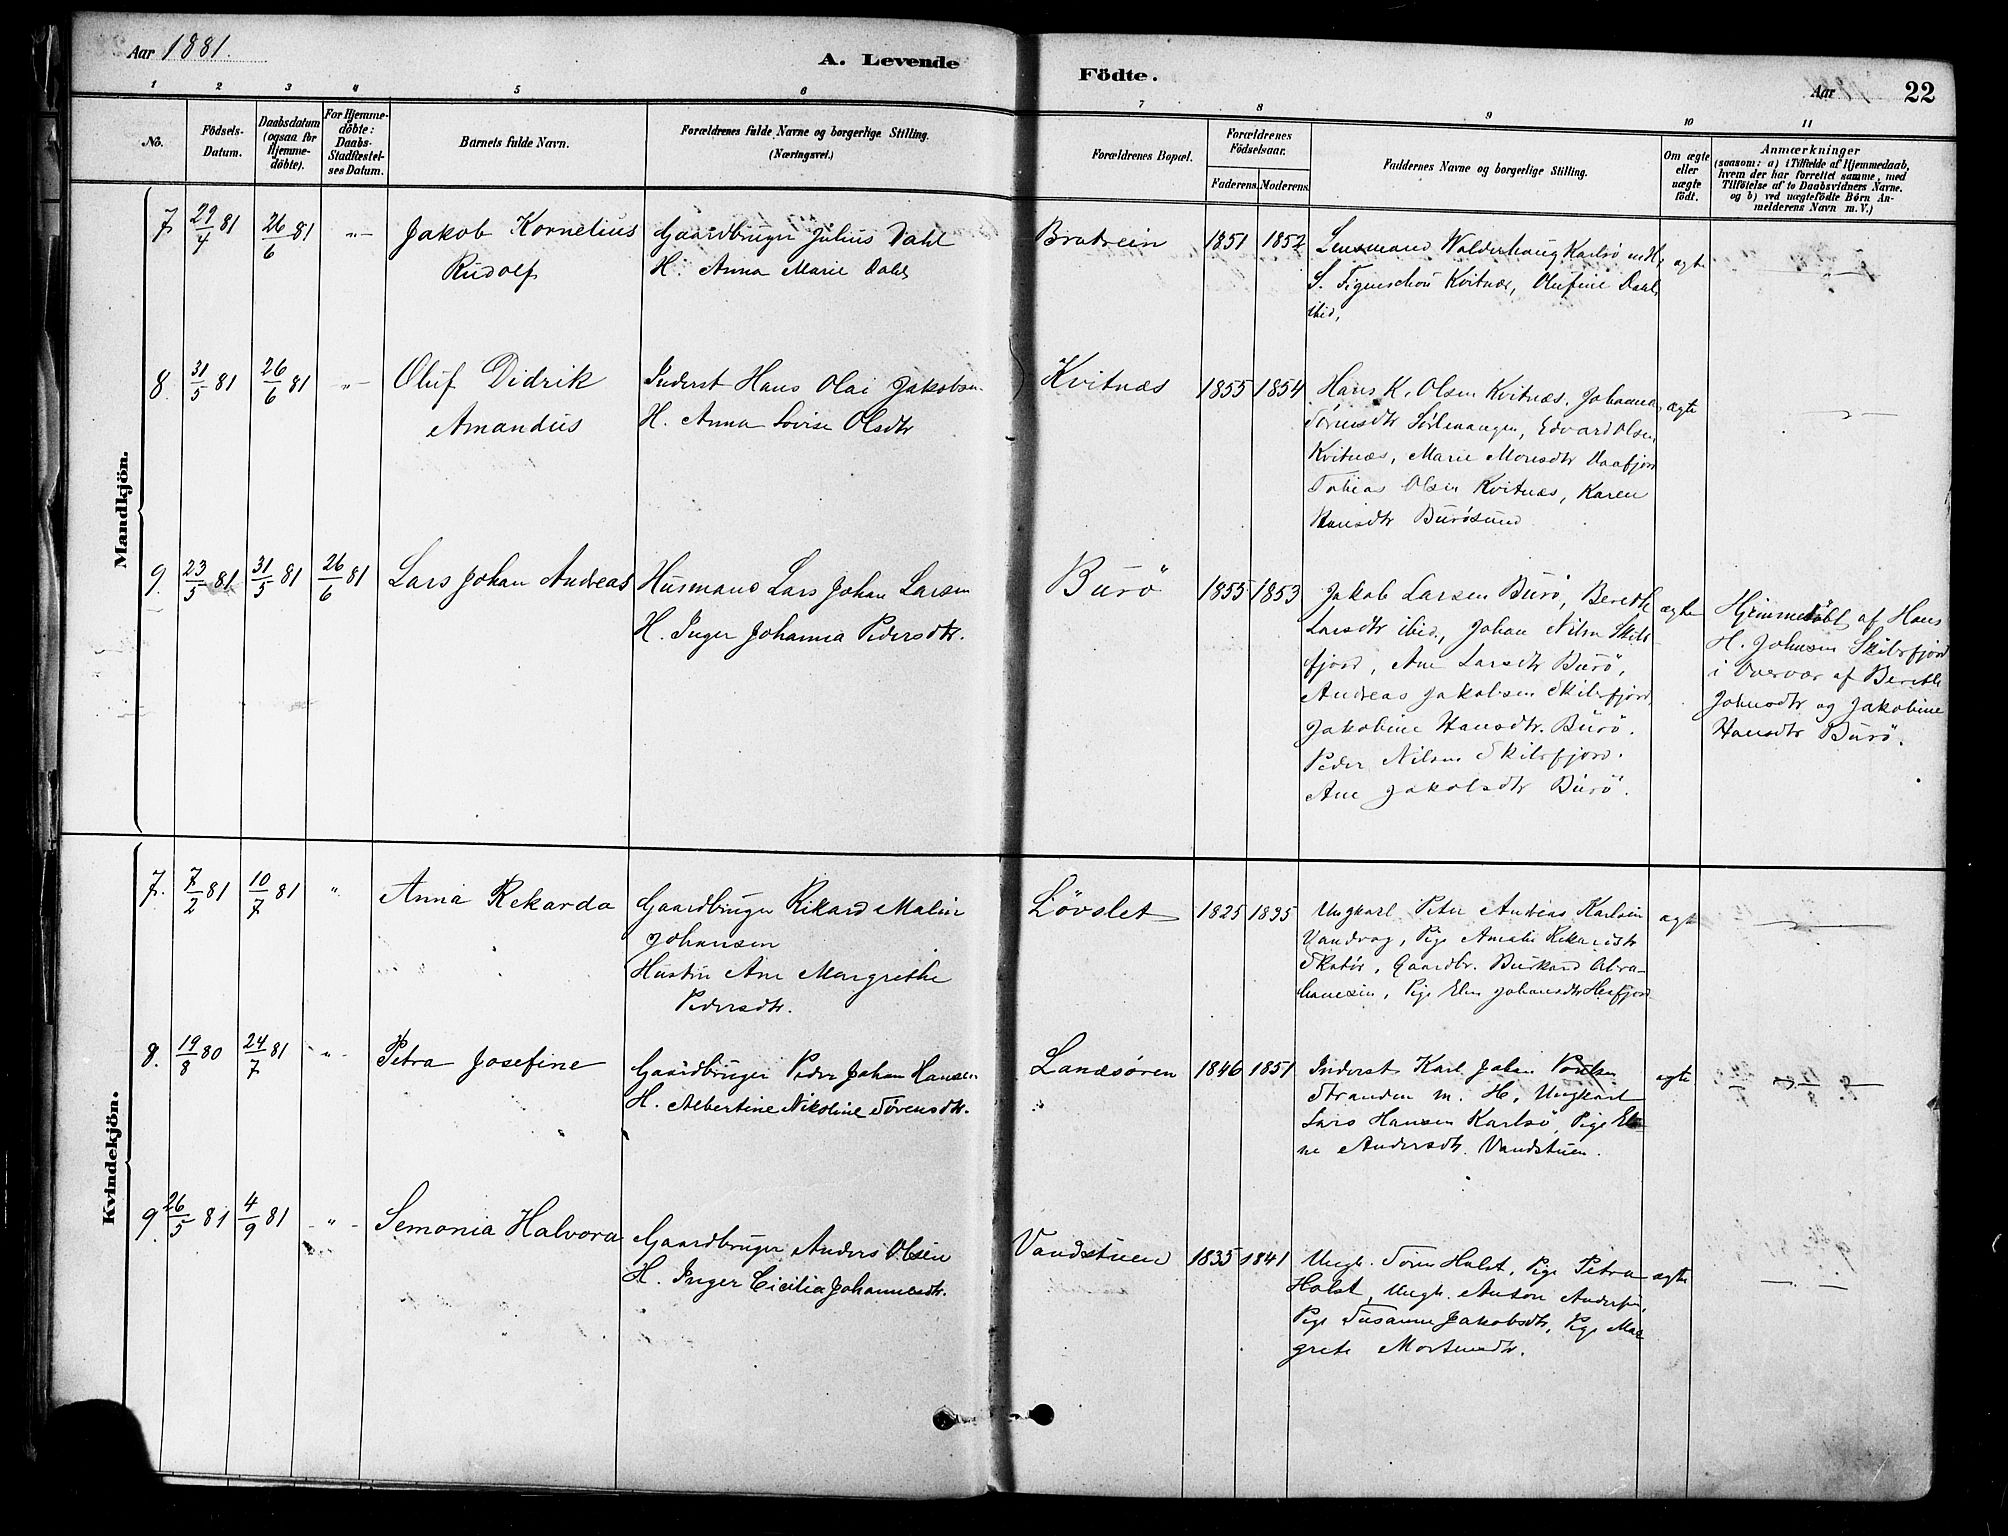 Aar 1881.
A. Levende Födte.
Aar
22
1 2 3 4 5 6 7 8 9 10 11
No.
Födsels-Datum.
Daabsdatum (ogsaa for Hjemme-döbte).
For Hjemme-döbte: Daabs-Stadfæstel-ses Datum.
Barnets fulde Navn.
Forældrenes fulde Navne og borgerlige Stilling.
(Næringsvei.)
Forældrenes Bopæl.
Forældrenes Födselsaar.
Faderens. Moderens.
Faddernes Navne og borgerlige Stilling.
Om ægte eller uægte födt.
Anmærkninger
(saasom: a) i Tilfælde af Hjemmedaab,
hvem der har forrettet samme, med
Tilföielse af to Daabsvidners Navne.
og b) ved uægtefödte Børn An-
melderens Navn m. V.)
Mandkjön.
7 29/4 81 26/6 81 -"- Jakob Kornelius
Rudolf
Gaardbruger Julius Dahl
H. Anna Marie Dahl
Bratrein 1851 1852
Lensmand Walderhaug Karlsö m H,
S. Figenschou Kvitnæs, Olufine Dahl
ibid,
ægte
8. 31/5 81 26/6 81 -"- Oluf Didrik
Amandus
Inderst Hans Olai Jakobsen
H. Anna Lovise Olsdtr
Kvitnæs 1855 1854
Hans K. Olsen Kvitnæs, Johanna
Sörensdtr Sörlenangen, Edvard Olsen
Kvitnæs, Marie Monsdtr
Tobias Olsen Kvitnæs, Karen
Hansdtr Burösund
ægte
9. 23/5 81 31/5 81 26/6 81 Lars Johan Andreas
Husmand Lars Johan Larsen
H. Inger Johanna Pedersdtr.
Burö 1855 1853
Jakob Larsen Burö, Berethe
Larsdtr ibid, Johan Nilsen Skibs-
fjord, Ane Larsdtr Burö,
Andreas Jakobsen Skibsfjord,
Jakobine Hansdtr. Burö.
Peder Nilsen Skibsfjord.
Ane Jakobsdtr Burö.
ægte
Hjemmedöbt af Hans
H. Johnsen Skibsfjord
i Overvær af Berethe
Johnsdtr og Jakobine
Hansdtr Burö.
Kvindekjön.
7. 7/2 81 10/7 81 " Anna Rekarda
Gaardbruger Rikard Malin
Johansen
Hustru Ane Margrethe
Pedersdtr.
Lövslet 1825 1835
Ungkarl Peter Andreas Karlsen
Vandvag, Pige Amalie Rikardsdtr
Skatör, Gaardbr. Burkard Abra-
hamsen, Pige Elen Johansdtr
ægte
8. 19/8 80 24/7 81 " Petra Josefine
Gaardbruger Peder Johan Hansen
H. Albertine Nikoline Sörensdtr.
Landsören 1846 1851
Inderst Karl Johan Poulsen
Stranden m. H, Ungkarl
Lars Hansen Karlsö, Pige Eli-
ne Andersdtr. Vandstuen.
ægte
9. 26/5 81 4/9 81 -"- Semonia Halvora
Gaardbruger Anders Olsen
H. Inger Cicilia Johannesdtr.
Vandstuen 1835 1841
Ungk. Sören Holst, Pige Petra
Holst, Ungk. Anton Andersen,
Pige Susanne Jakobsdtr, Pige Mar
grete Mortensdtr.
ægte